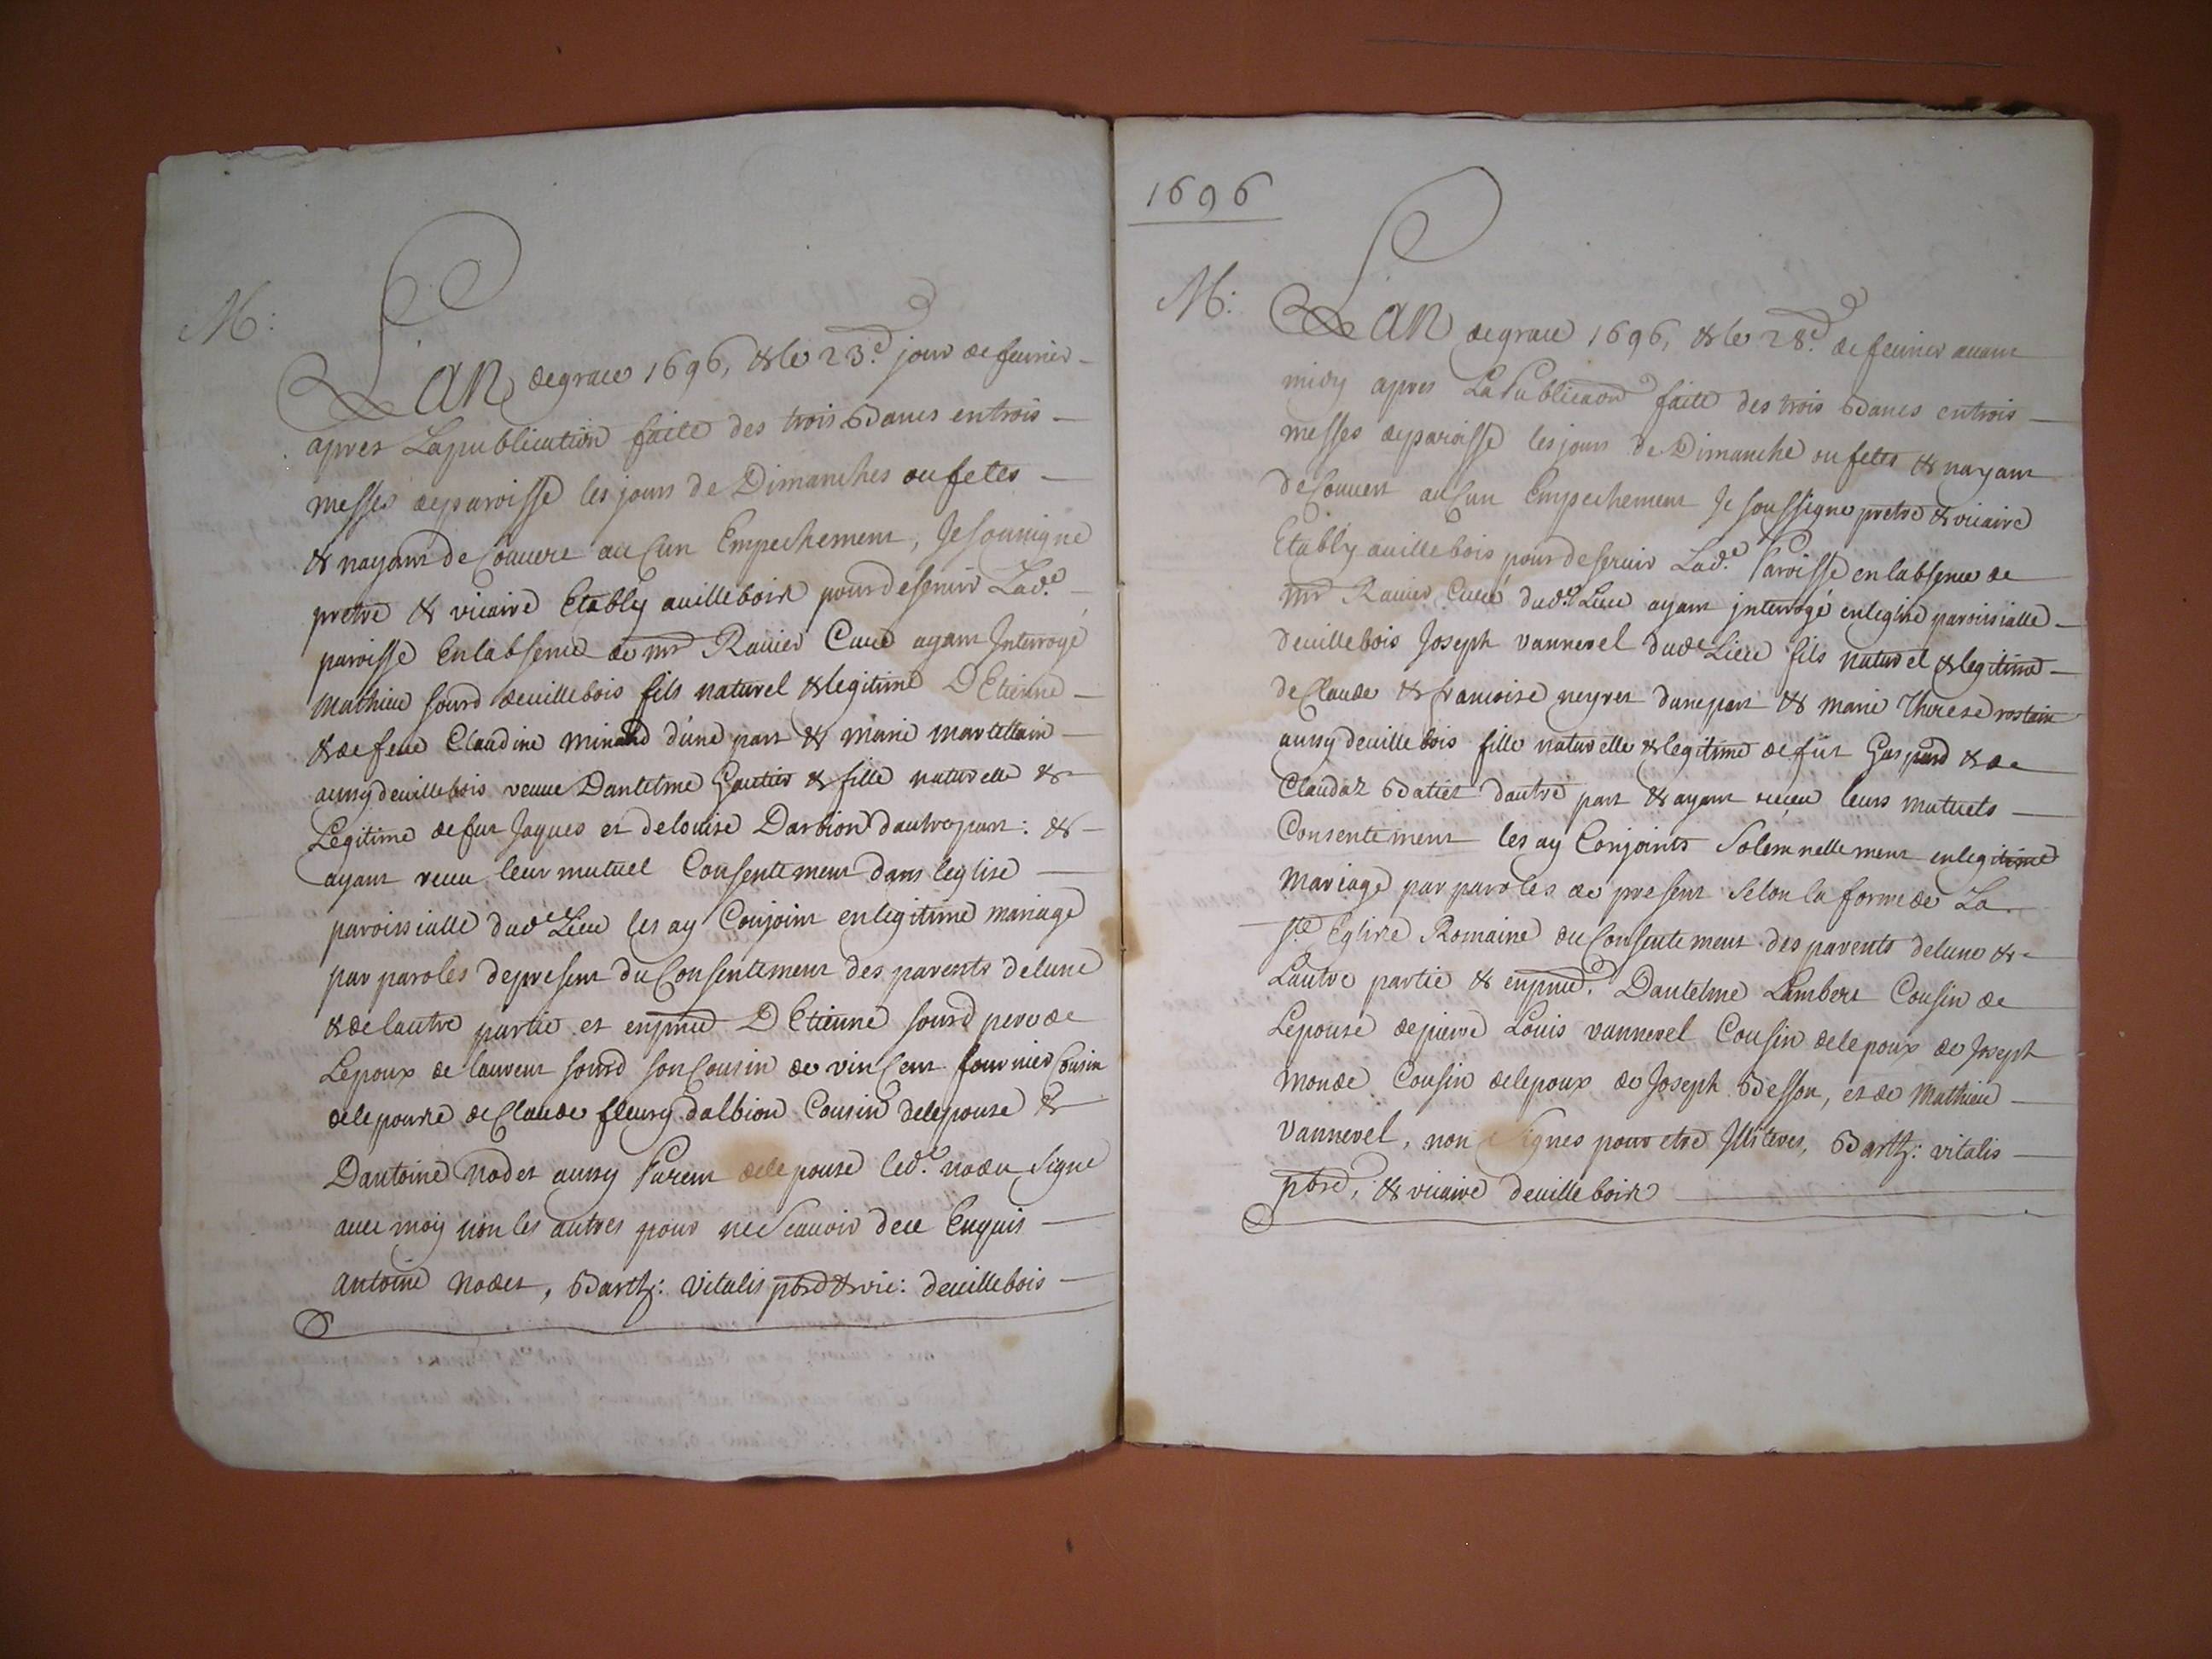 M:
L'AN de grace 1696, & le 23e. jour de feurier
apres La publication faite des trois Bancs en trois
messes de paroisse les jours de Dimanches ou fetes
& nayant decouuert aucun Empechement, Je sousigné
pretre & vicaire Etably a uillebois pour deseruir Lade.
paroisse En labsence de mr Rauier Curé ayant Interrogé
mathieu sourd de uillebois fils naturel & legitime D Etienne
& de feue Claudine minand d'une part & marie martellain
aussy de uillebois veuue Dantelme Gautier & fille naturelle &
Legitime de fut Jaques et de louise Darbion dautre part: &
ayant receu leur mutuel Consentement dans leglise
paroissialle dude Lieu les ay Conjoint en legitime mariage
par paroles de present du Consentement des parents de lune
& de lautre partie et en pnce D Etienne sourd pere de
Lepoux de laurent sourd son Cousin de vincent fournier Cousin
de lepouse de Claude fleury dalbion Cousin de lepouse &
Dantoine nodet aussy Parent de lepouse led.e nodet Signé
auec moy non les autres pour ne Scauoir de ce Enquis
antoine nodet, Barth: vitalis pbre & vic: de uillebois
1696
M:
L'AN de grace 1696, & le 28e. de feurier auant
midy apres La Publicaon faite des trois Bancs en trois
messes de paroisse les jours de Dimanche ou fetes & nayant
decouuert aucun Empechement Je soussigne pretre & vicaire
Etably a uillebois pour deseruir Lad.e Paroisse en labsence de
mr Rauier Curé dud.e Lieu ayant jnterrogé en leglise paroissialle
de uillebois Joseph vannerel dude Lieu fils naturel & legitime
de Claude & francoise neyret dune part & marie Therese rostain
aussy de uillebois fille naturelle & legitime de fut Gaspard & de
Claudaz Batiet dautre part & ayant receu leurs mutuels
Consentement les ay Conjoints Solemnellement en legitime
Mariage par paroles de present Selon la forme de La
ste Eglise Romaine du Consentement des parents de lune &
Lautre partie & en pnce. Dantelme Lambert Cousin de
Lepouse de pierre Louis vannerel Cousin de lepoux de Joseph
monde Cousin de lepoux de Joseph Besson, et de Mathieu
vannerel, non Signes pour etre Illiteres, Barth: vitalis
pbre, & vicaire de uillebois